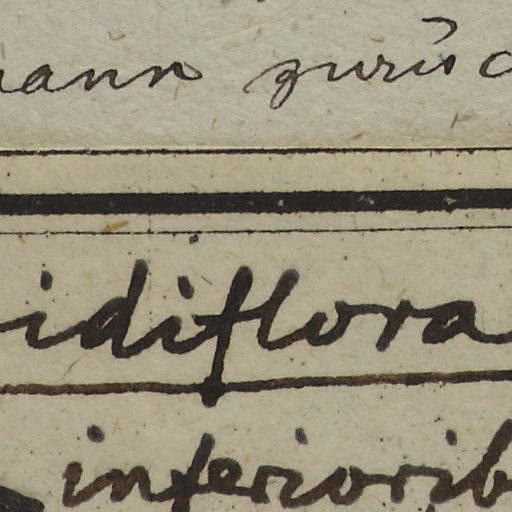 ann zurüc
idiflora
inferiorib